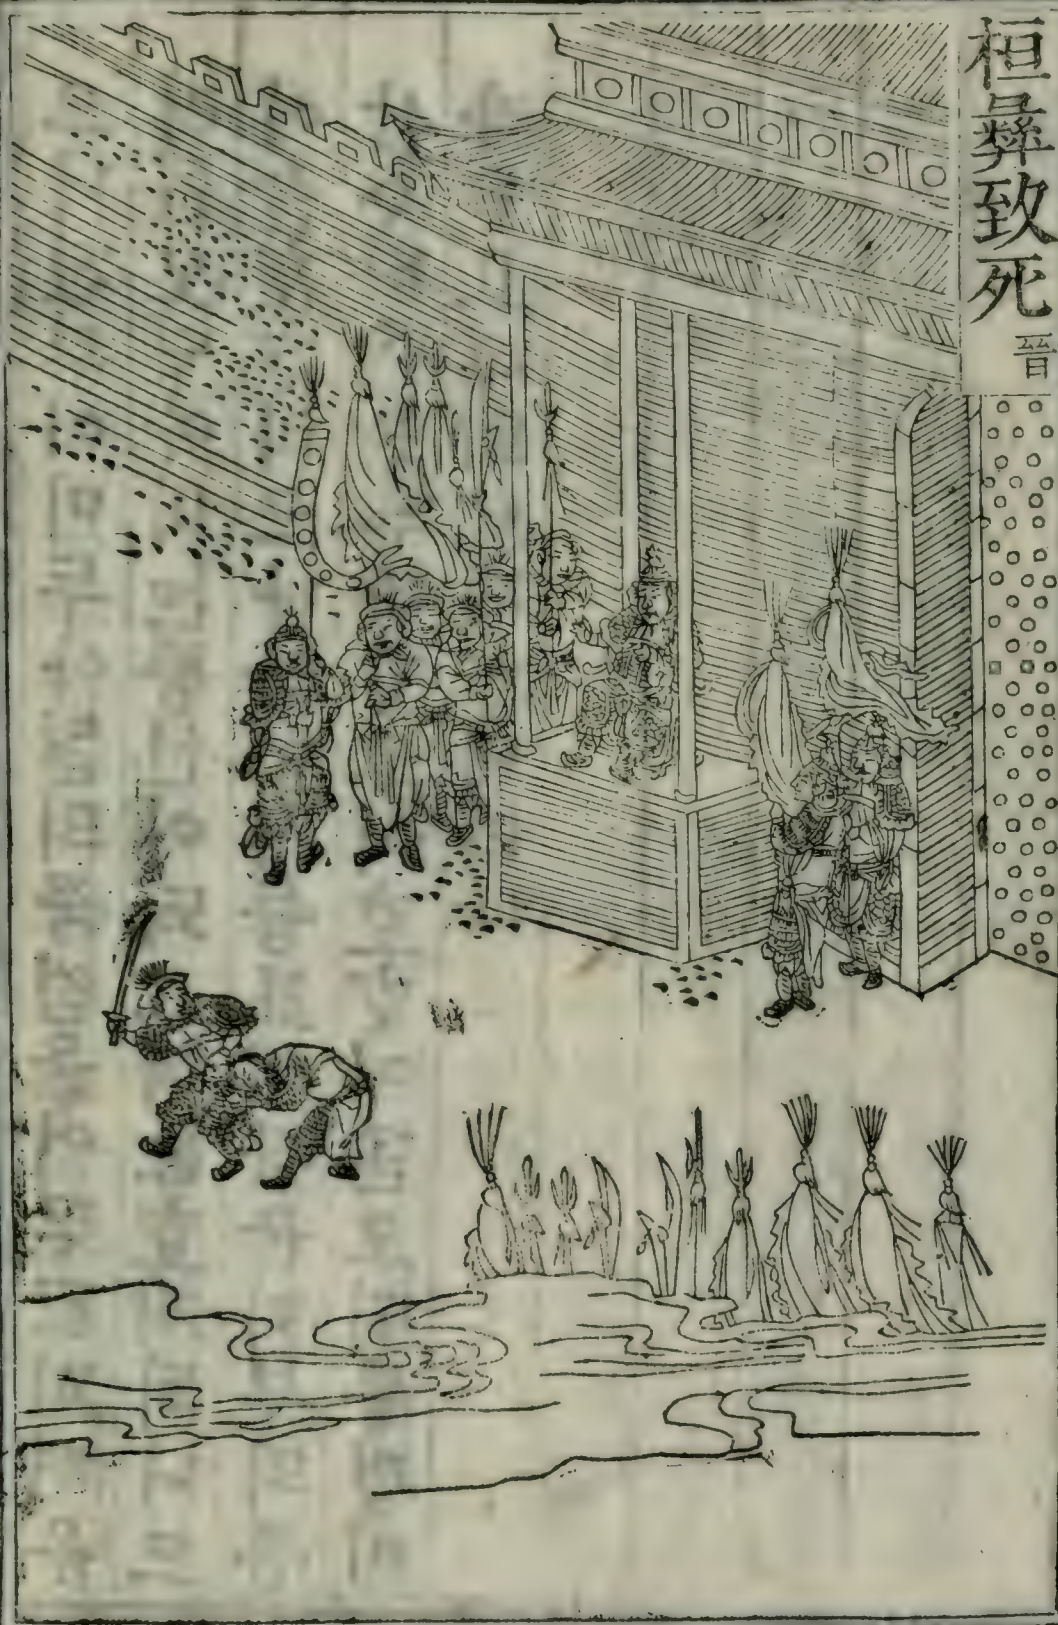 桓彝致死 晉